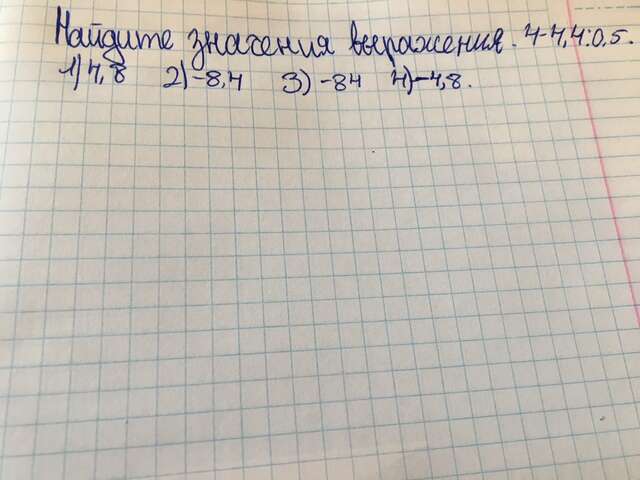 Найдите значения выражения. 4-4,4:0,5.
1) 4,8 2) -8,4 3) -84 4) -4,8.